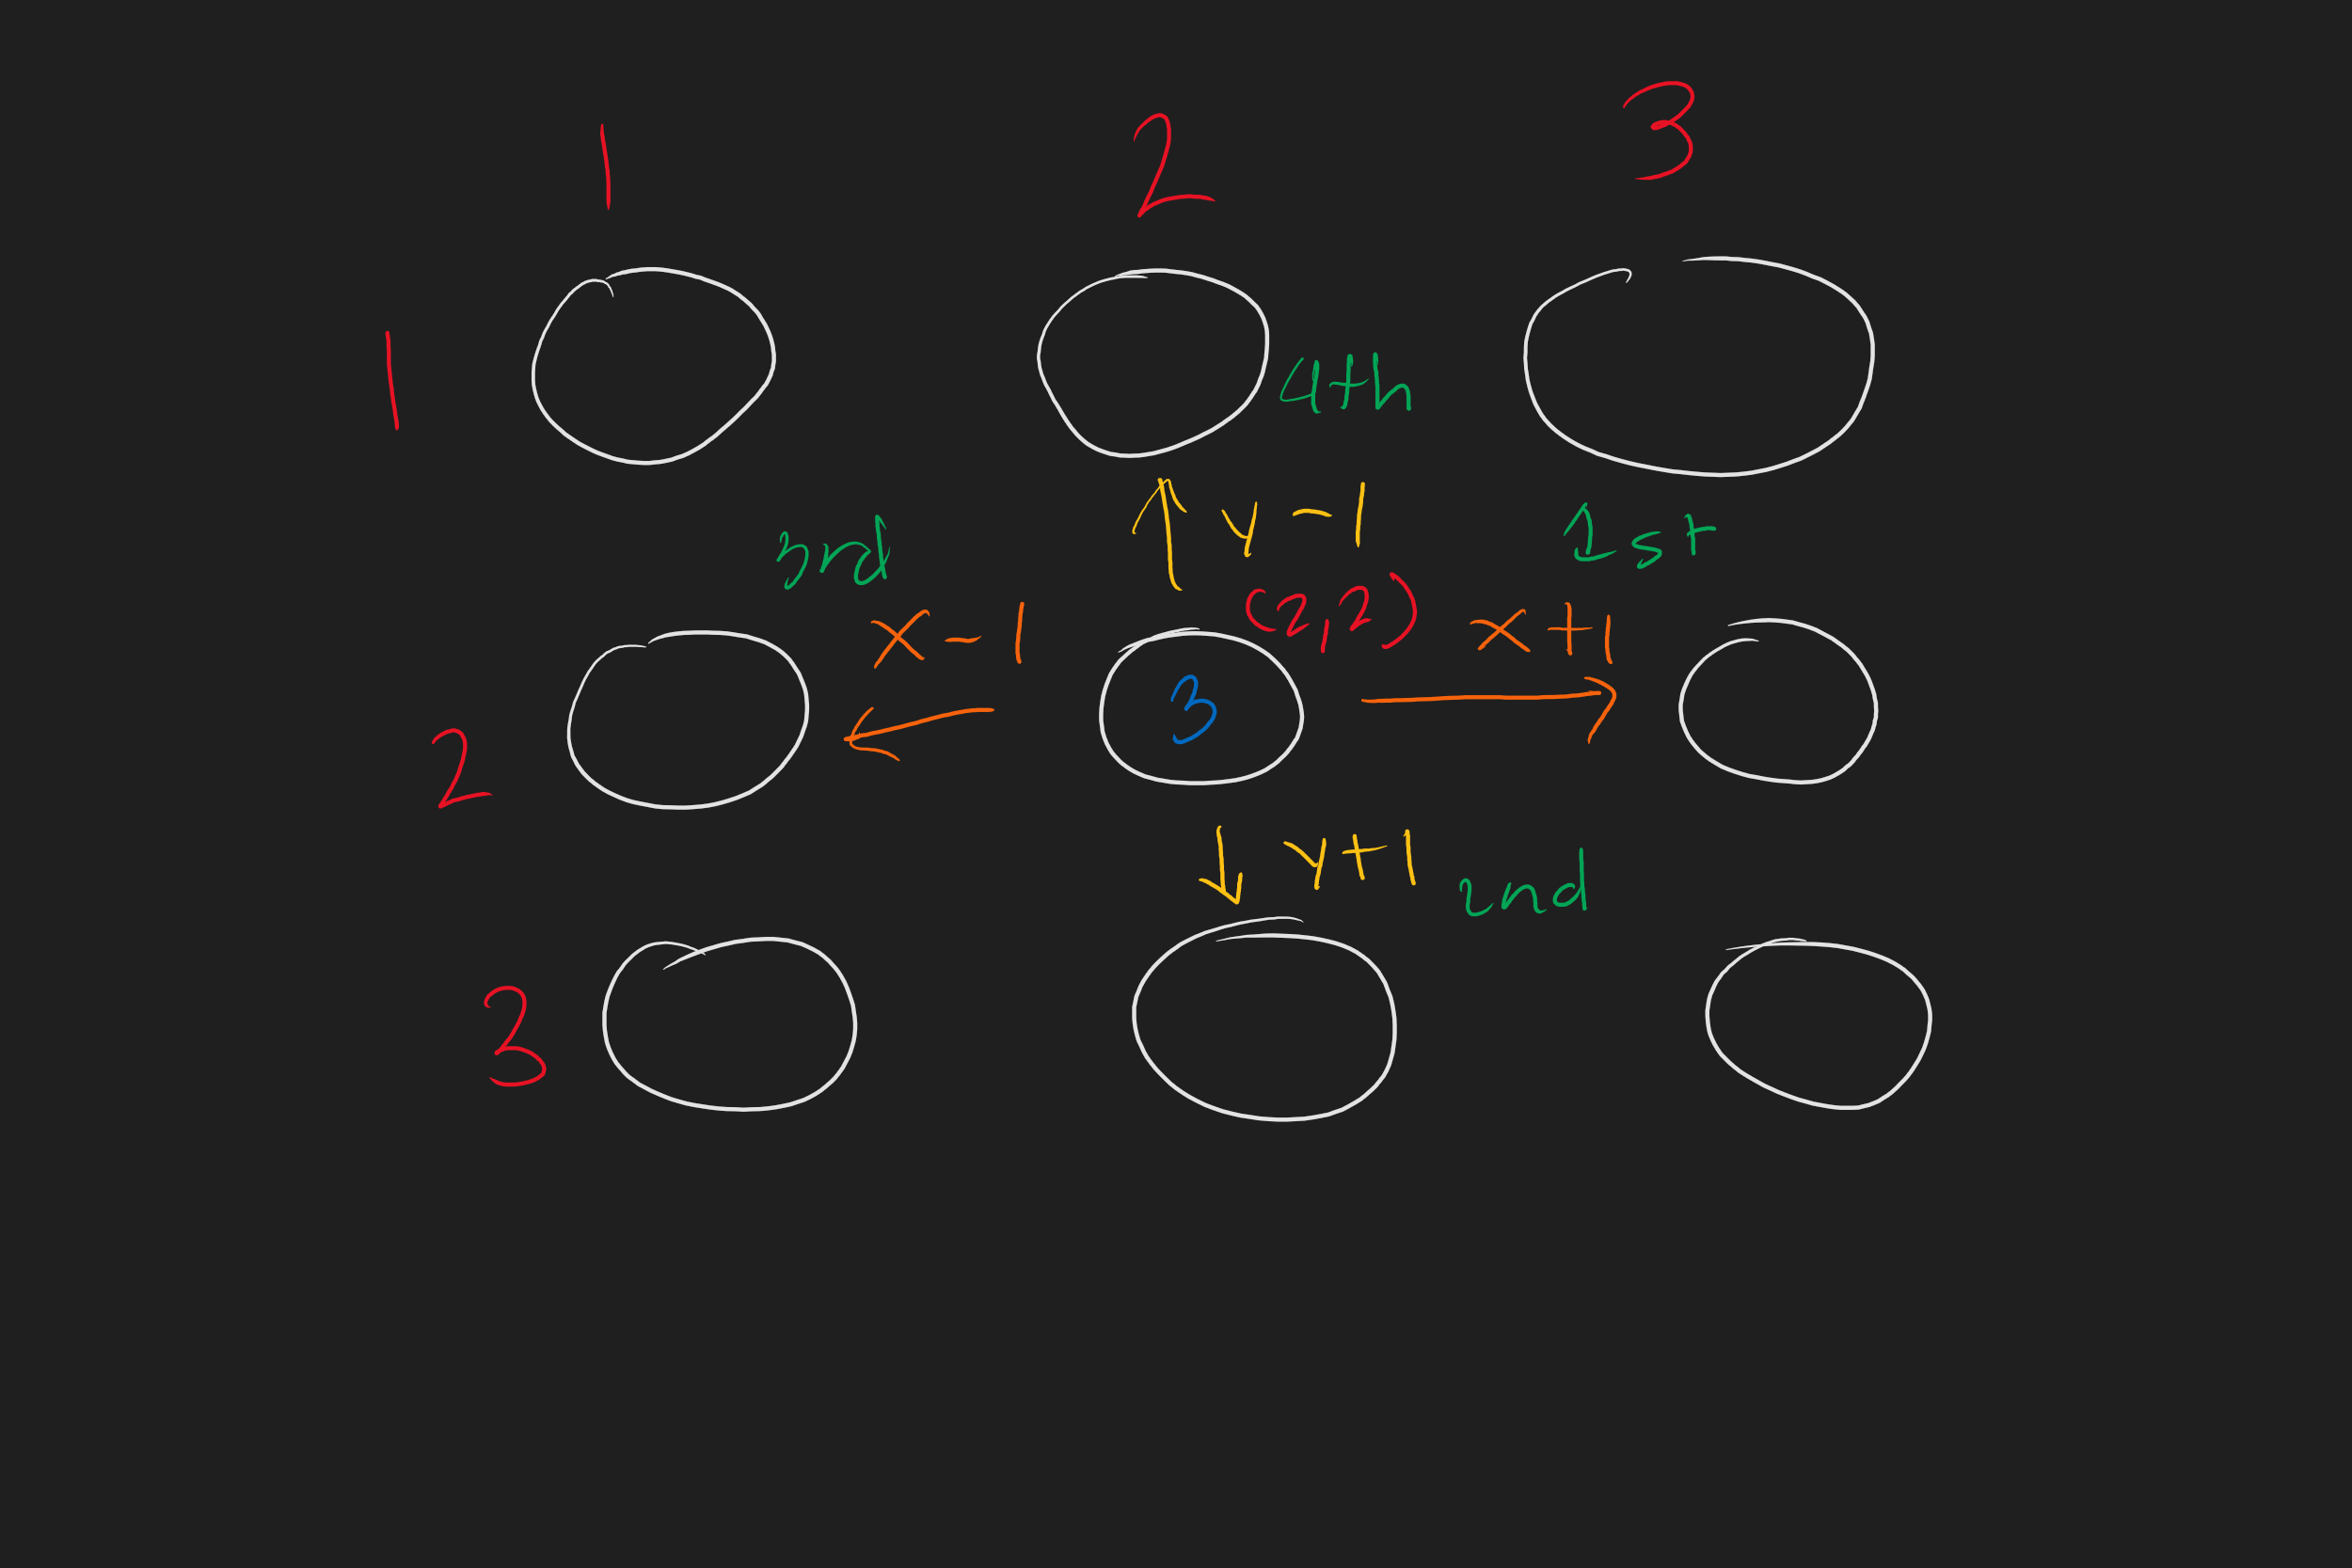 1 2 3
1
4th
y-1
3rd
1st
(2,2)
x-1
x+1
3
2
y+1
2nd
3